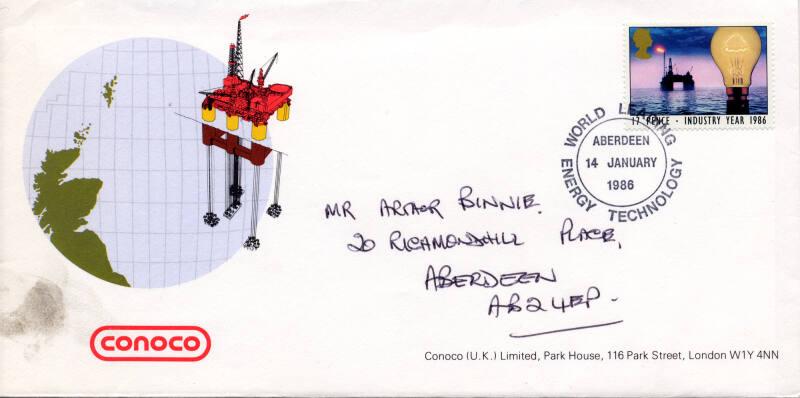 17 PENCE · INDUSTRY YEAR 1986
WORLD LEADING
ABERDEEN
14 JANUARY
1986
ENERGY TECHNOLOGY
MR ARTHUR BINNIE.
20 RICHMONDHILL PLACE,
ABERDEEN
AB2 4EP.
conoco
Conoco (U.K.) Limited, Park House, 116 Park Street, London W1Y 4NN